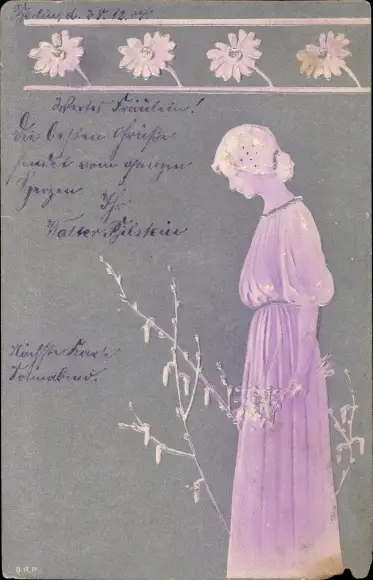 Berlin, d. 28. 12. 05
Wertes Fräulein!
Die besten Grüße
sendet vom ganzen
Herzen
Ihr
Walter Bilstein
Nächste Karte
Sonnabend.
D.R.P.